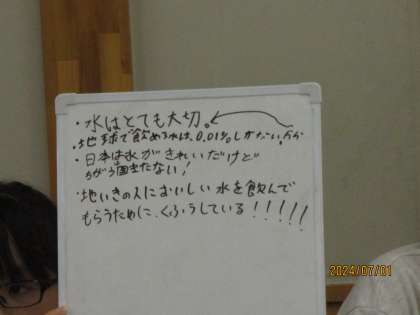 ・水はとても大切。
・地球で飲める水は、0.01%しかない!から
・日本は水がきれいだけど
ちがう国きたない!
・地いきの人においしい水を飲んで
もらうために、くふうしている!!!!!
2024/07/01